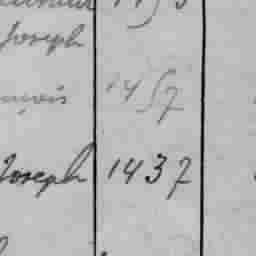 Joseph
nçois 1457
Joseph 1437